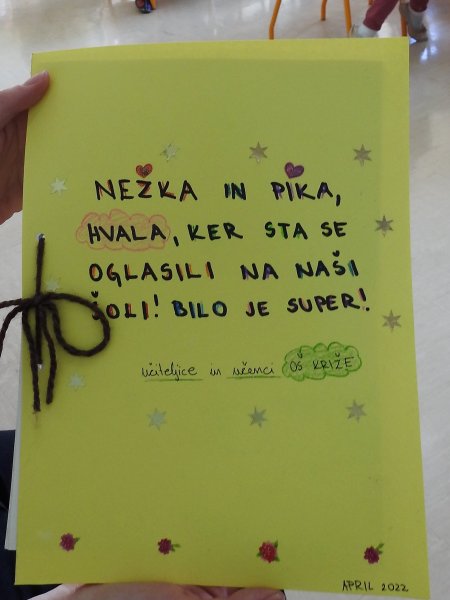 NEŽKA IN PIKA,
HVALA, KER STA SE
OGLASILI NA NAŠI
ŠOLI! BILO JE SUPER!
učiteljice in učenci OŠ KRIŽE
APRIL 2022